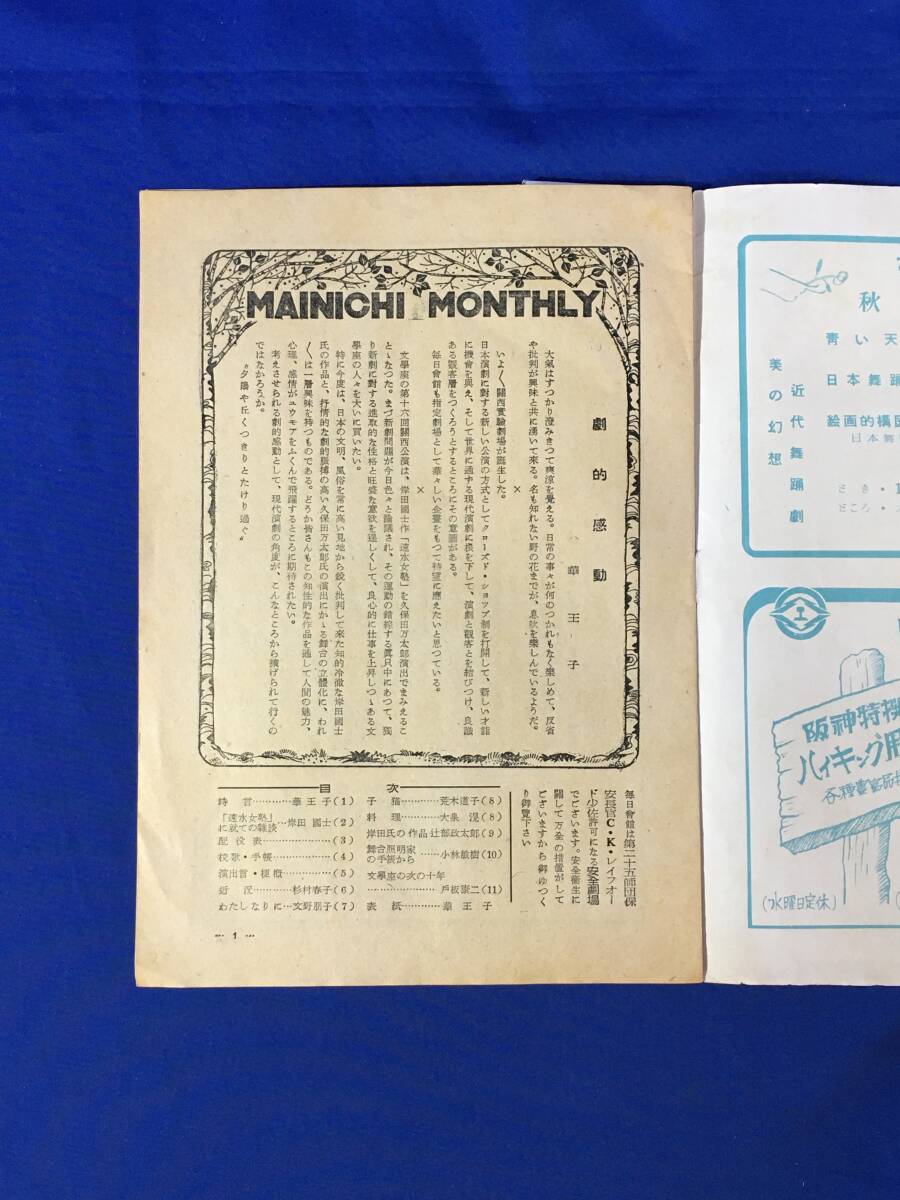 MAINICHI MONTHLY
劇的感動
華王子
大氣はすつかり澄みきつて爽涼を覺える。日常の事々が何のつかれもなく樂しめて、反省
や批判が興味と共に湧いて來る。名も知れない野の花までが、息吹を樂しんでいるようだ。
×
いよ〳〵關西實驗劇場が誕生した。
日本演劇に對する新しい公演の方式としてクローズド・ショップ制を打開して、新しい才能
に機會を與え、そして世界に通ずる現代演劇に根を下して、演劇と觀客とを結びつけ、良識
ある觀客層をつくろうとするところにその意圖がある。
毎日會館も指定劇場として華々しい企畫をもつて待望に應えたいと思つている。
×
文學座の第十六回關西公演は、岸田國士作「速水女塾」を久保田万太郎演出でまみえるこ
とゝなつた。まづ新劇問題が今日色々と論議され、その運動の錯綜する眞只中にあつて、獨
り新劇に對する進取的な性格と旺盛な意欲を逞しくして、良心的に仕事を上昇しつゝある文
學座の人々を大いに買いたい。
特に今度は、日本の文明、風俗を常に高い見地から銳く批判して來た知的冷徹な岸田國士
氏の作品と、抒情的な劇的脈搏の高い久保田万太郎氏の演出にかゝる舞台の立體化に、われ
〳〵は一層興味を持つものである。どうか皆さんもこの知性的な作品を通して人間の魅力、
心理、感情がユウモアをふくんで飛躍するところに期待されたい。
考えさせられる劇的感動として、現代演劇の角度が、こんなところから擴げられて行くの
ではなかろうか。
“夕陽や丘くつきりとたけり過ぐ”
目次
時言…………華王子(1)
「速水女塾」に就ての雜談…岸田國士(2)
配役表……………(3)
校歌・手帳…………(4)
演出言・梗槪………(5)
近況…………杉村春子(6)
わたしなりに…文野朋子(7)
子猫…………荒木道子(8)
料理…………大泉滉(8)
岸田氏の作品 辻部政太郎(9)
舞台照明家の手帳から…小林敏樹(10)
文學座の次の十年
……………戶板康二(11)
表紙…………華王子
毎日會館は第二十五師団保
安長官C・K・レイフォー
ド少佐許可になる安全劇場
でございます。安全衛生に
關して万全の措置がして
ございますから御ゆつく
り御覽下さい
… 1 …
秋
青い天
日本舞踊
絵画的構図
日本舞
近代舞踊劇
美の幻想
とき・
ところ・
阪神特撰
ハイキング用
各種豊富品揃
(水曜日定休)